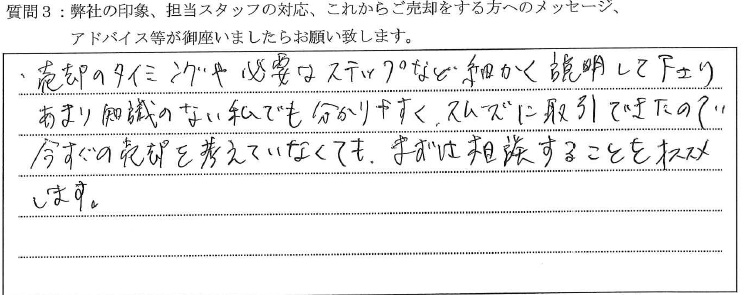 質問3：弊社の印象、担当スタッフの対応、これからご売却をする方へのメッセージ、
アドバイス等が御座いましたらお願い致します。
・売却のタイミングや必要なステップなど細かく説明して下さり
あまり知識のない私でも分かりやすく、スムーズに取引できたので、
今すぐの売却を考えていなくても、まずは相談することをオススメ
します。